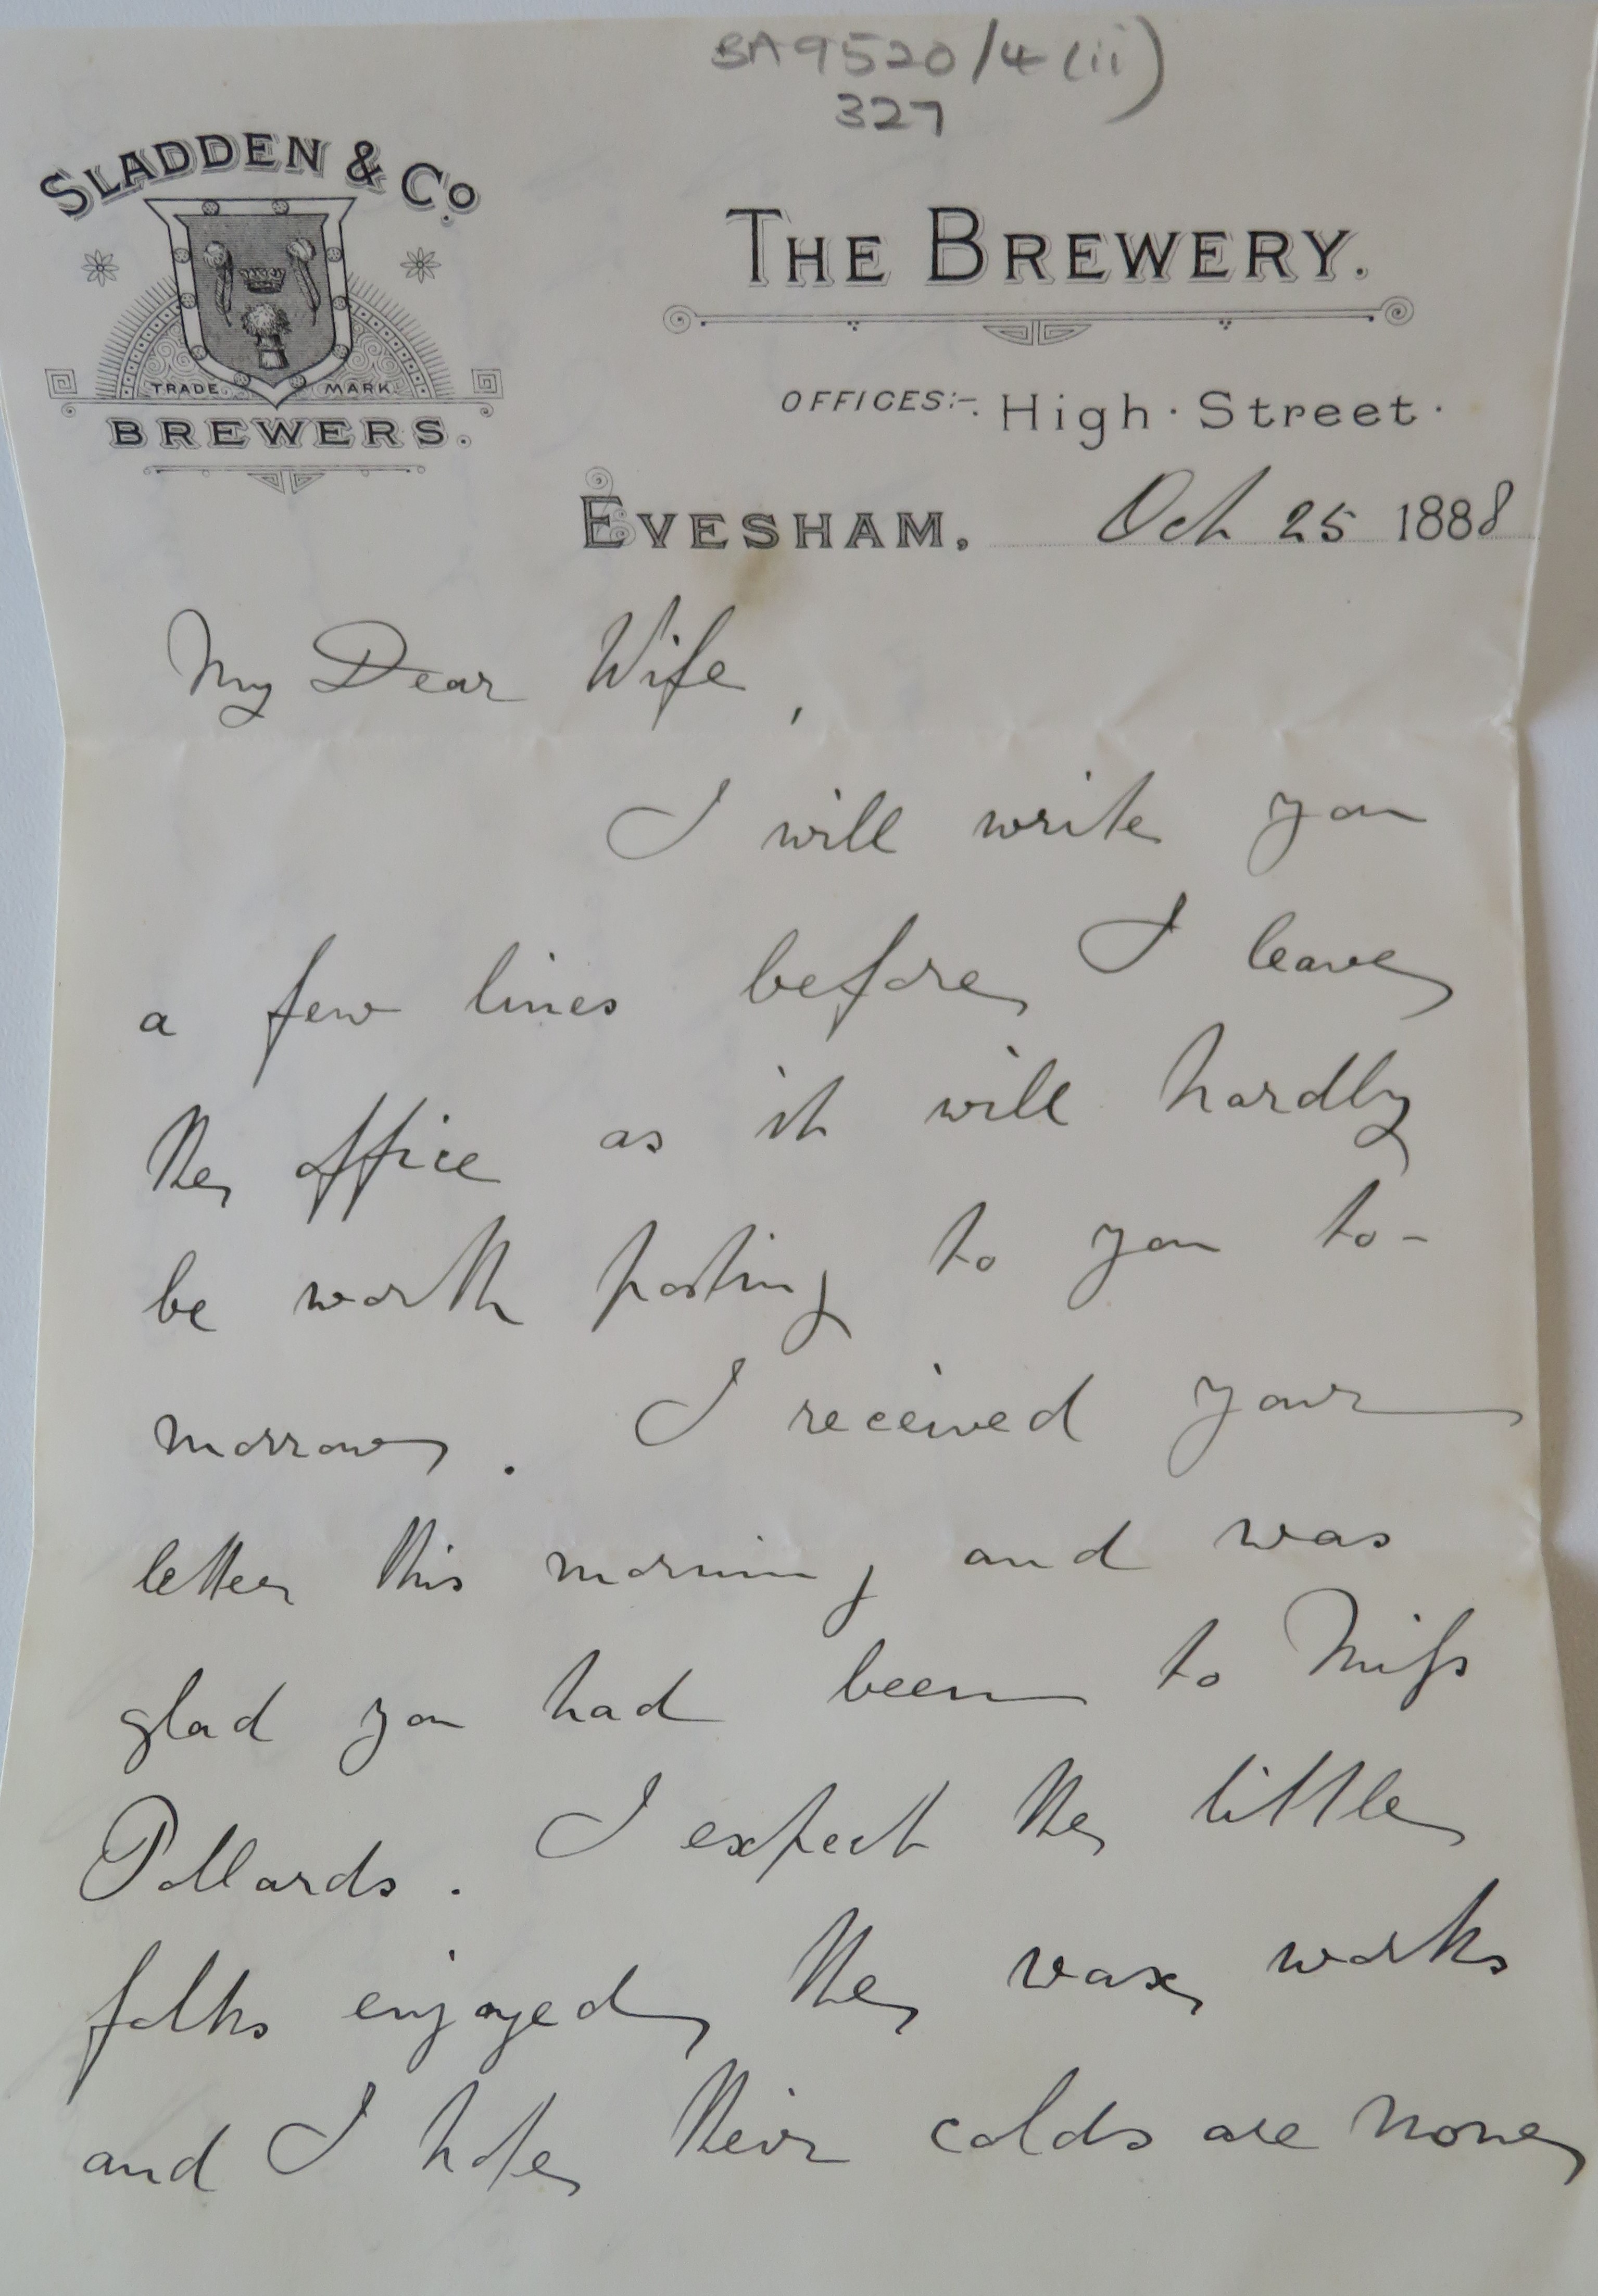 BA9520/4(ii)
327
SLADDEN & Co.
TRADE MARK
BREWERS.
THE BREWERY.
OFFICES:- High Street.
EVESHAM, Oct 25 1888
My Dear Wife,
I will write you
a few lines before I leave
the office as it will hardly
be worth posting to you to-
morrow. I received your
letter this morning and was
glad you had been to Miss
Pollards. I expect the little
folks enjoyed the wax works
and I hope their colds are none